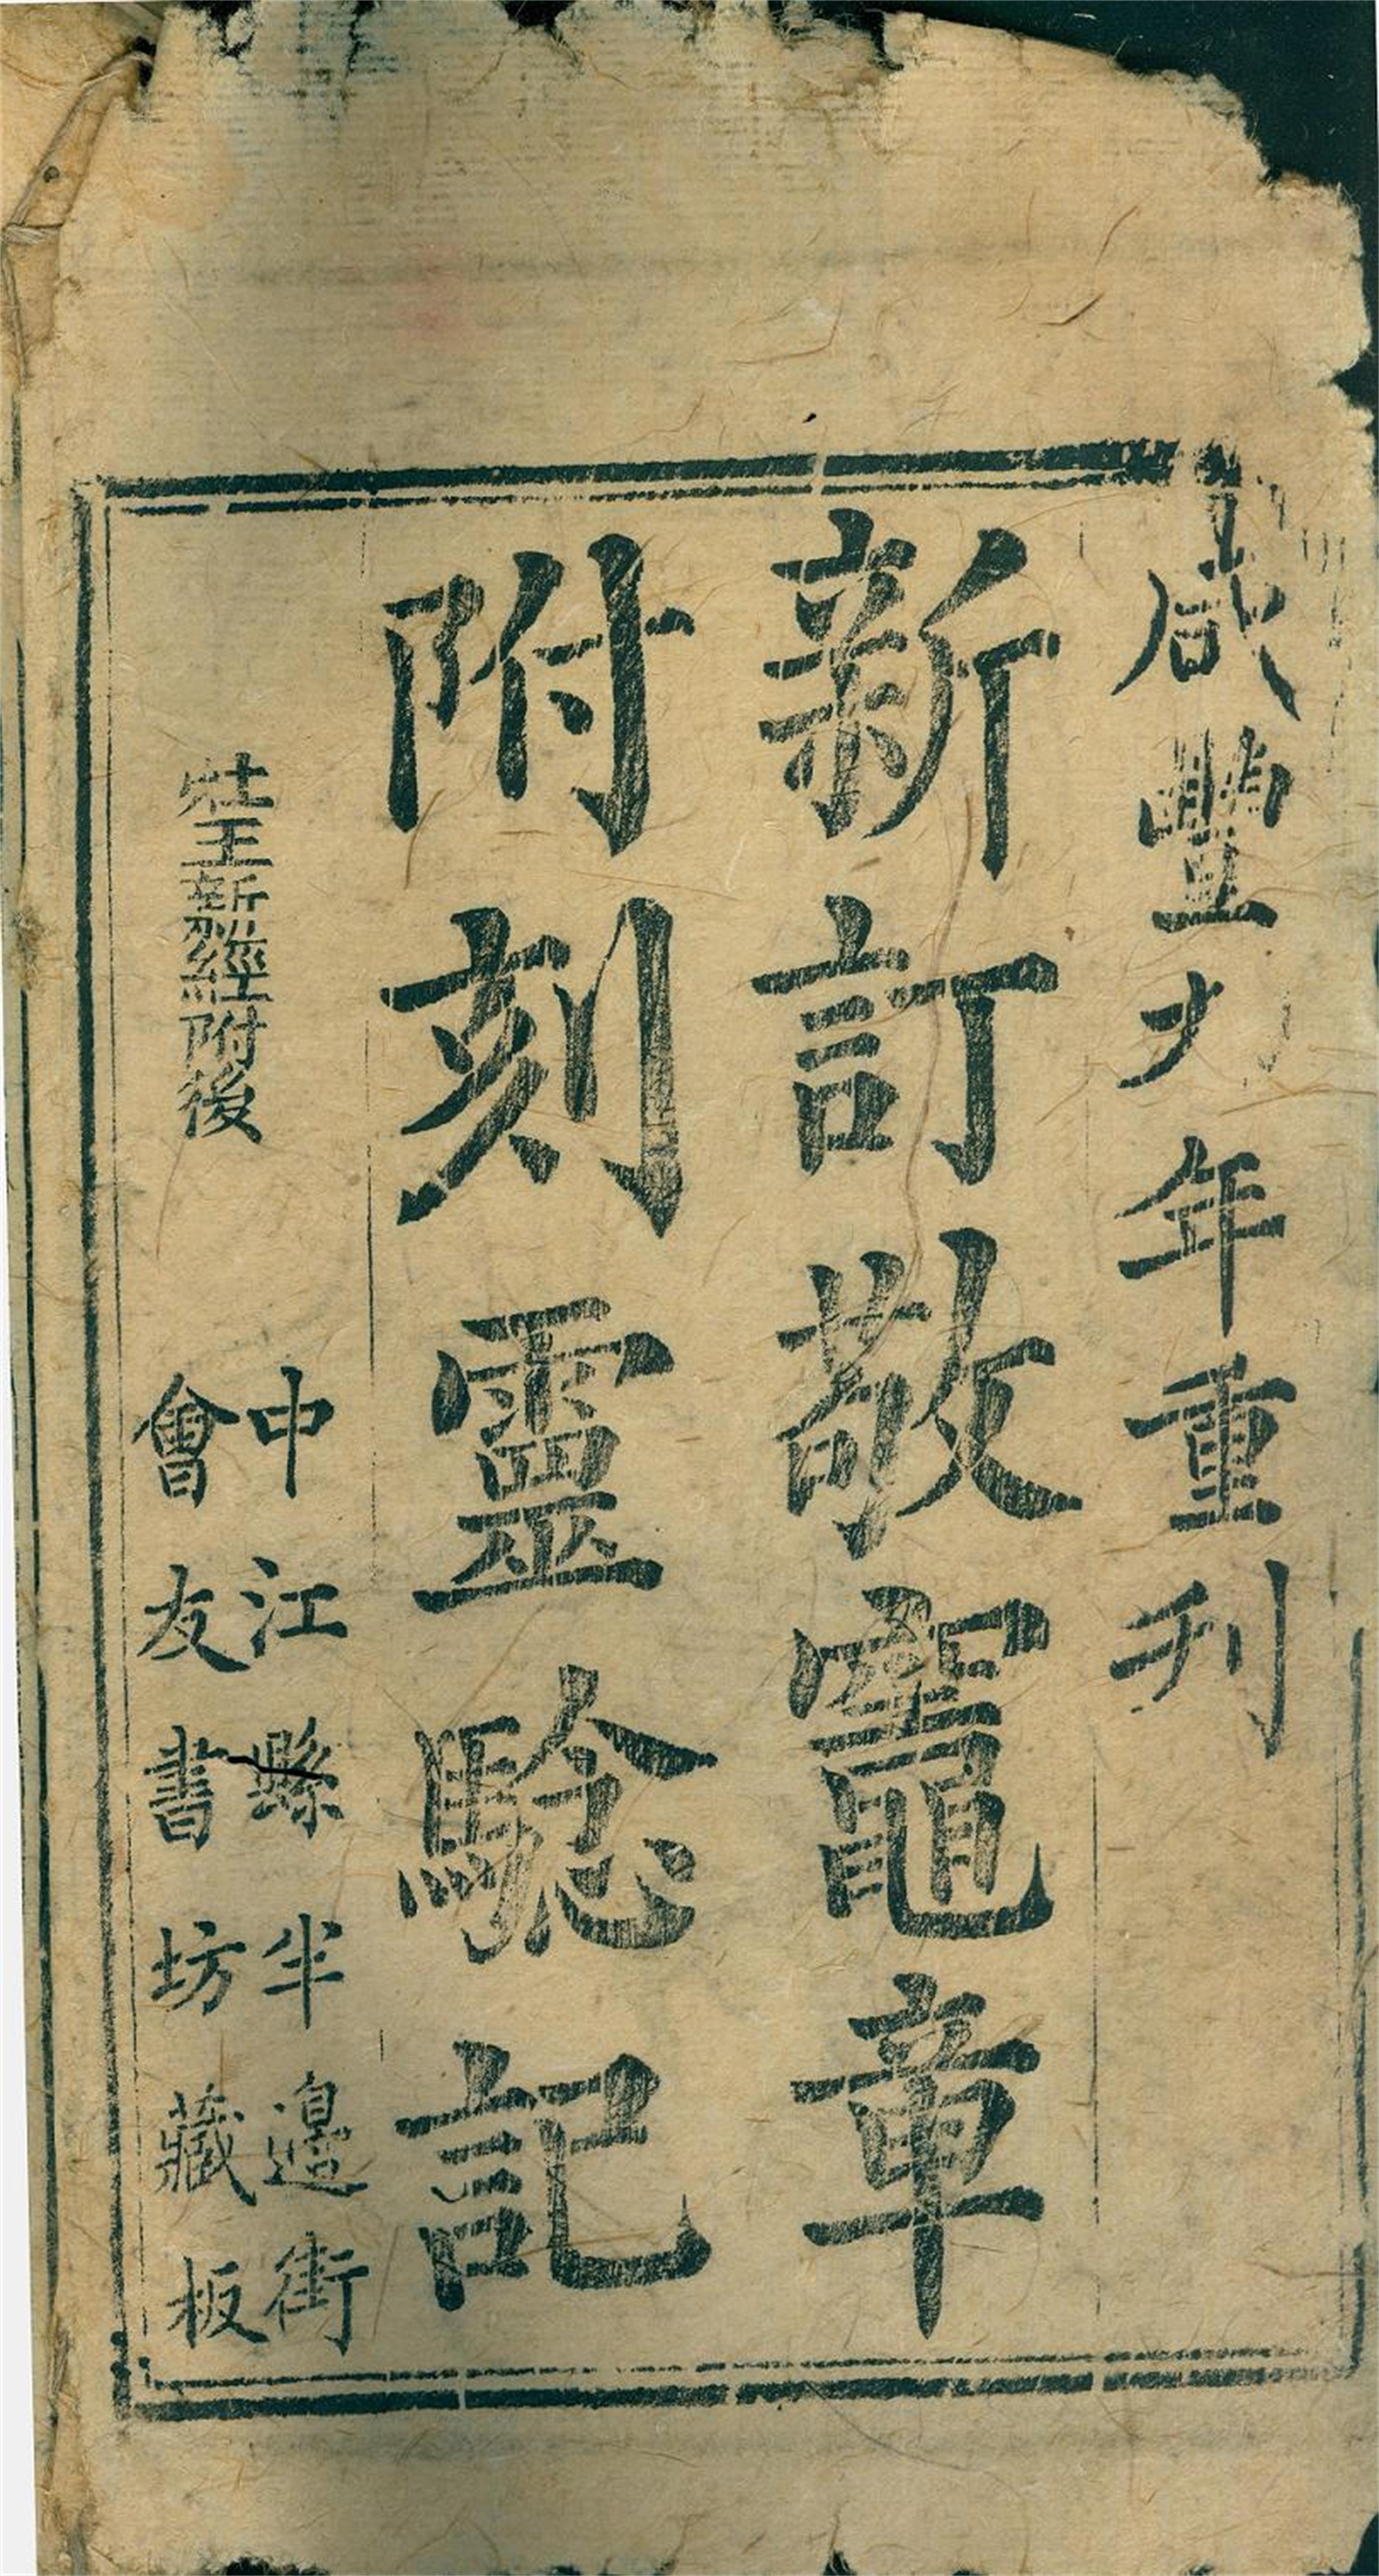 咸豐九年重刋
新訂敬竈章
附刻靈驗記
灶王新經附後
中江縣半邊街
會友書坊藏板